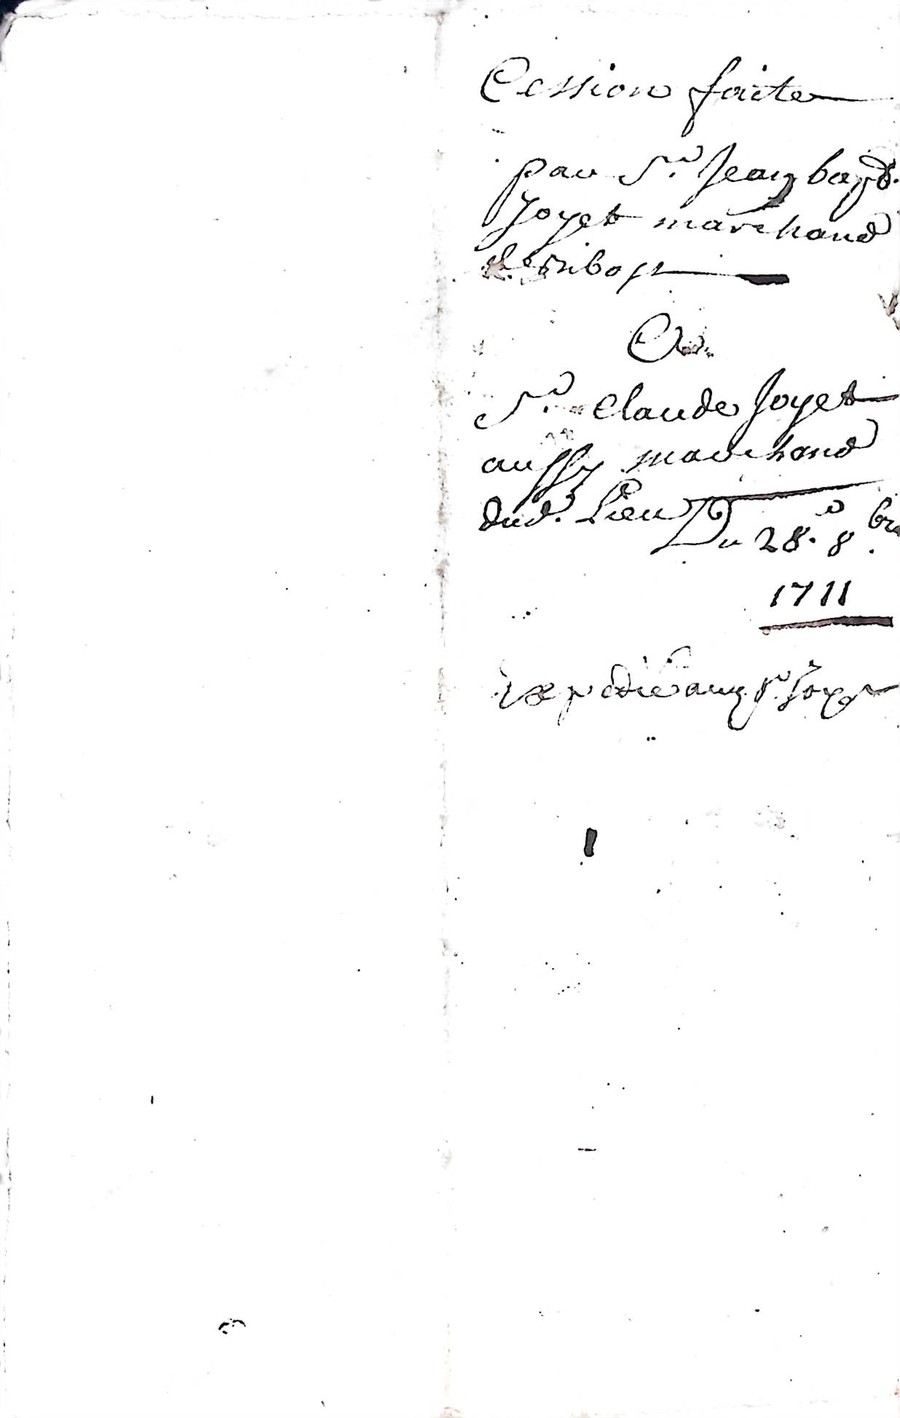 Cession faite
par Sr. Jean bapt.
Joyet marchand
de Ribost
A
Sr. Claude Joyet
aussy marchand
dud. Lieu Du 28e. 8bre
1711
expedié aud sr Joyet